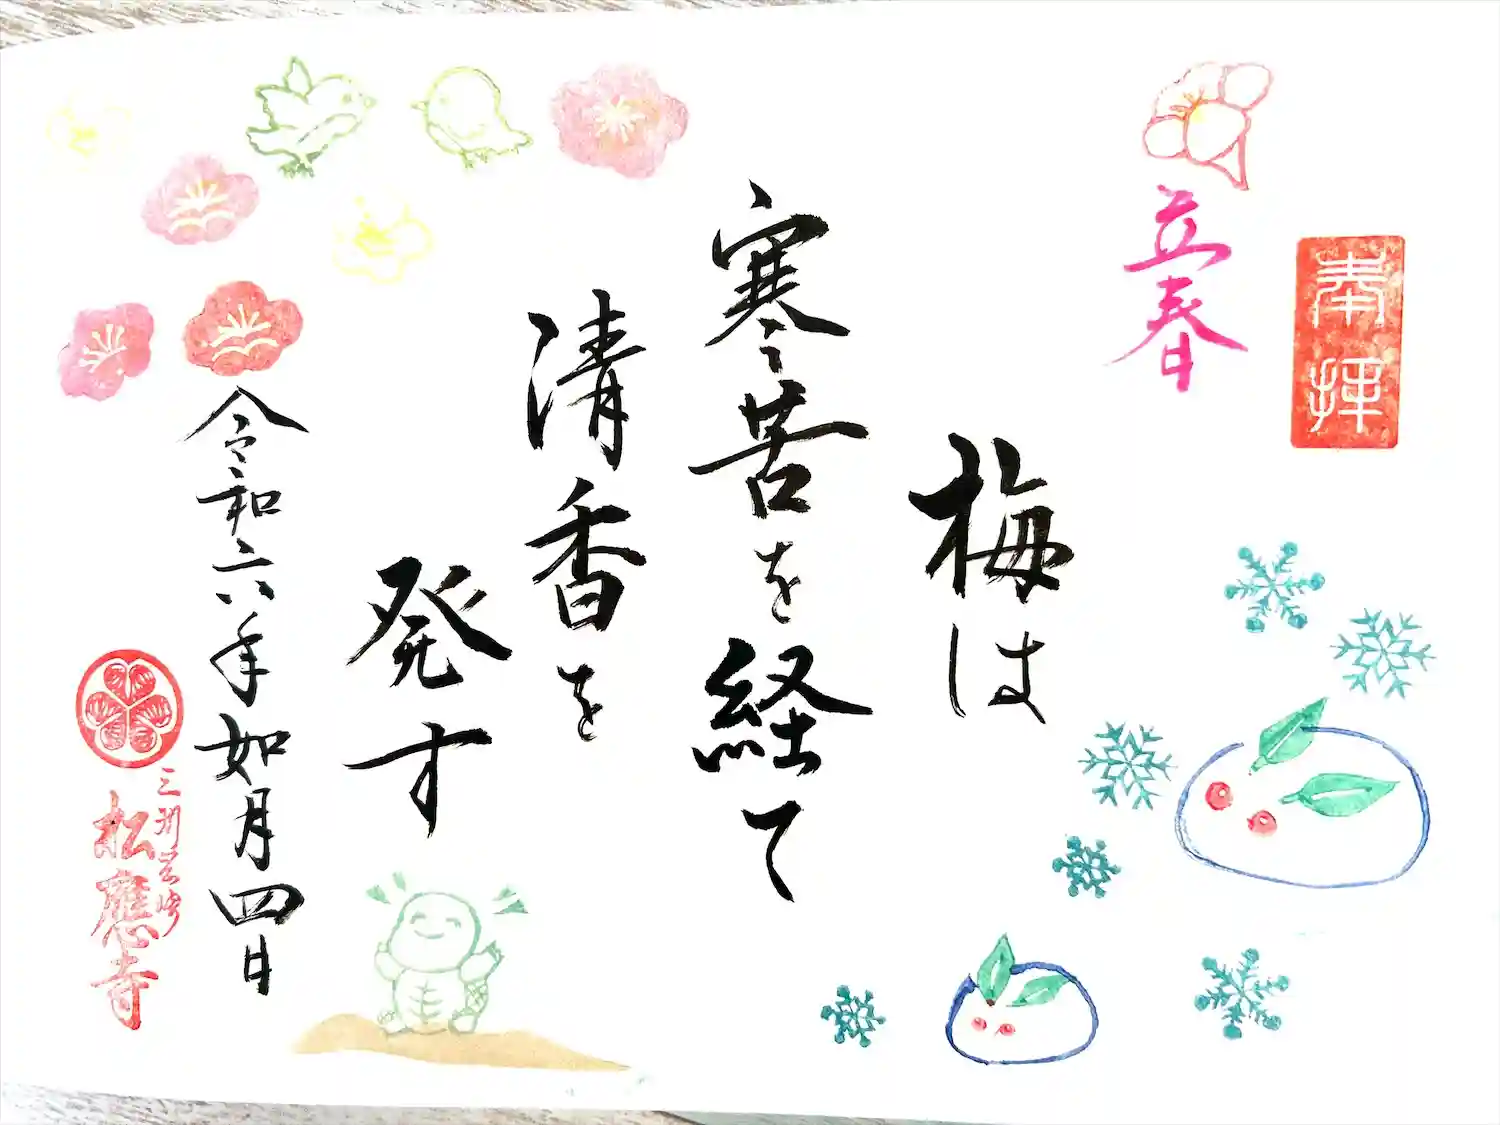 奉拝
立春
梅は
寒苦を経て
清香を
発す
令和六年如月四日
三州岡崎
松應寺